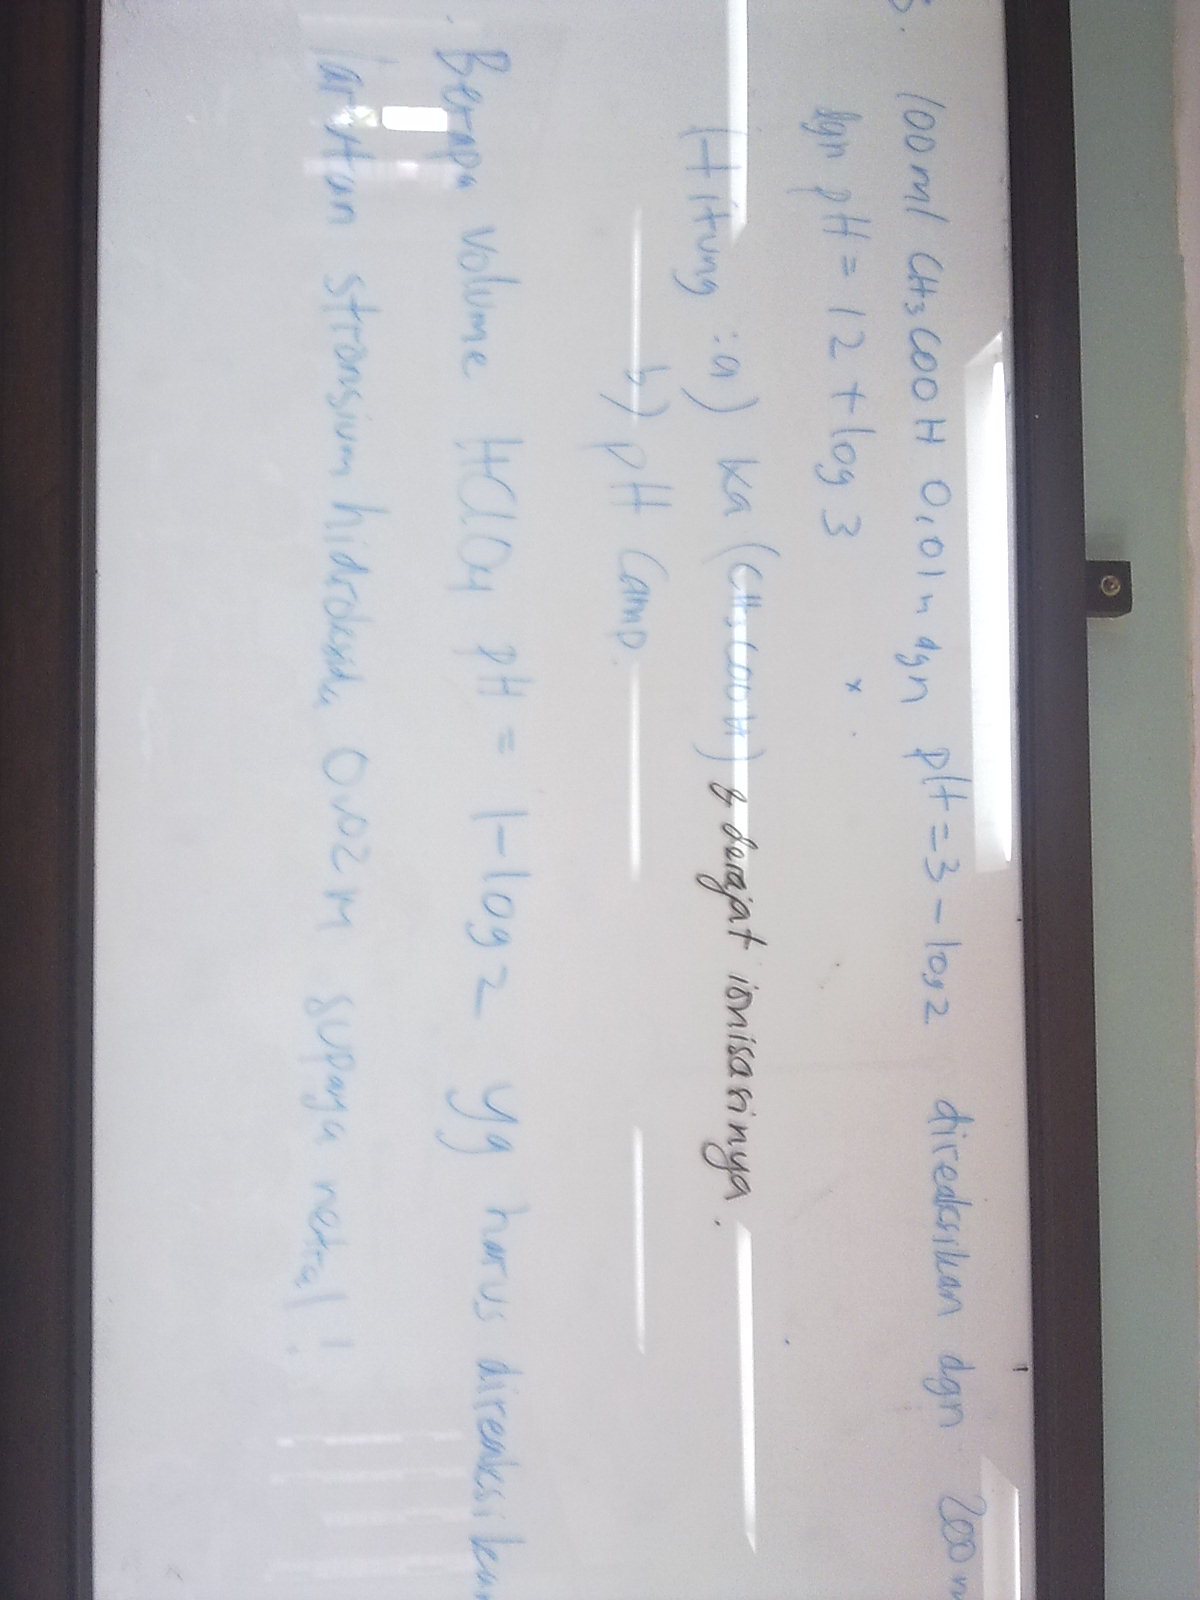 3. 100 ml CH3COOH 0,01 M dgn pH = 3 - log 2 direaksikan dgn 200 m
dgn pH = 12 + log 3
Hitung : a) ka (CH3COOH) & derajat ionisasinya.
b) pH Camp.
Berapa volume HClO4 pH = 1 - log 2 yg harus direaksikan
larutan stronsium hidroksida 0,02 M supaya netral!